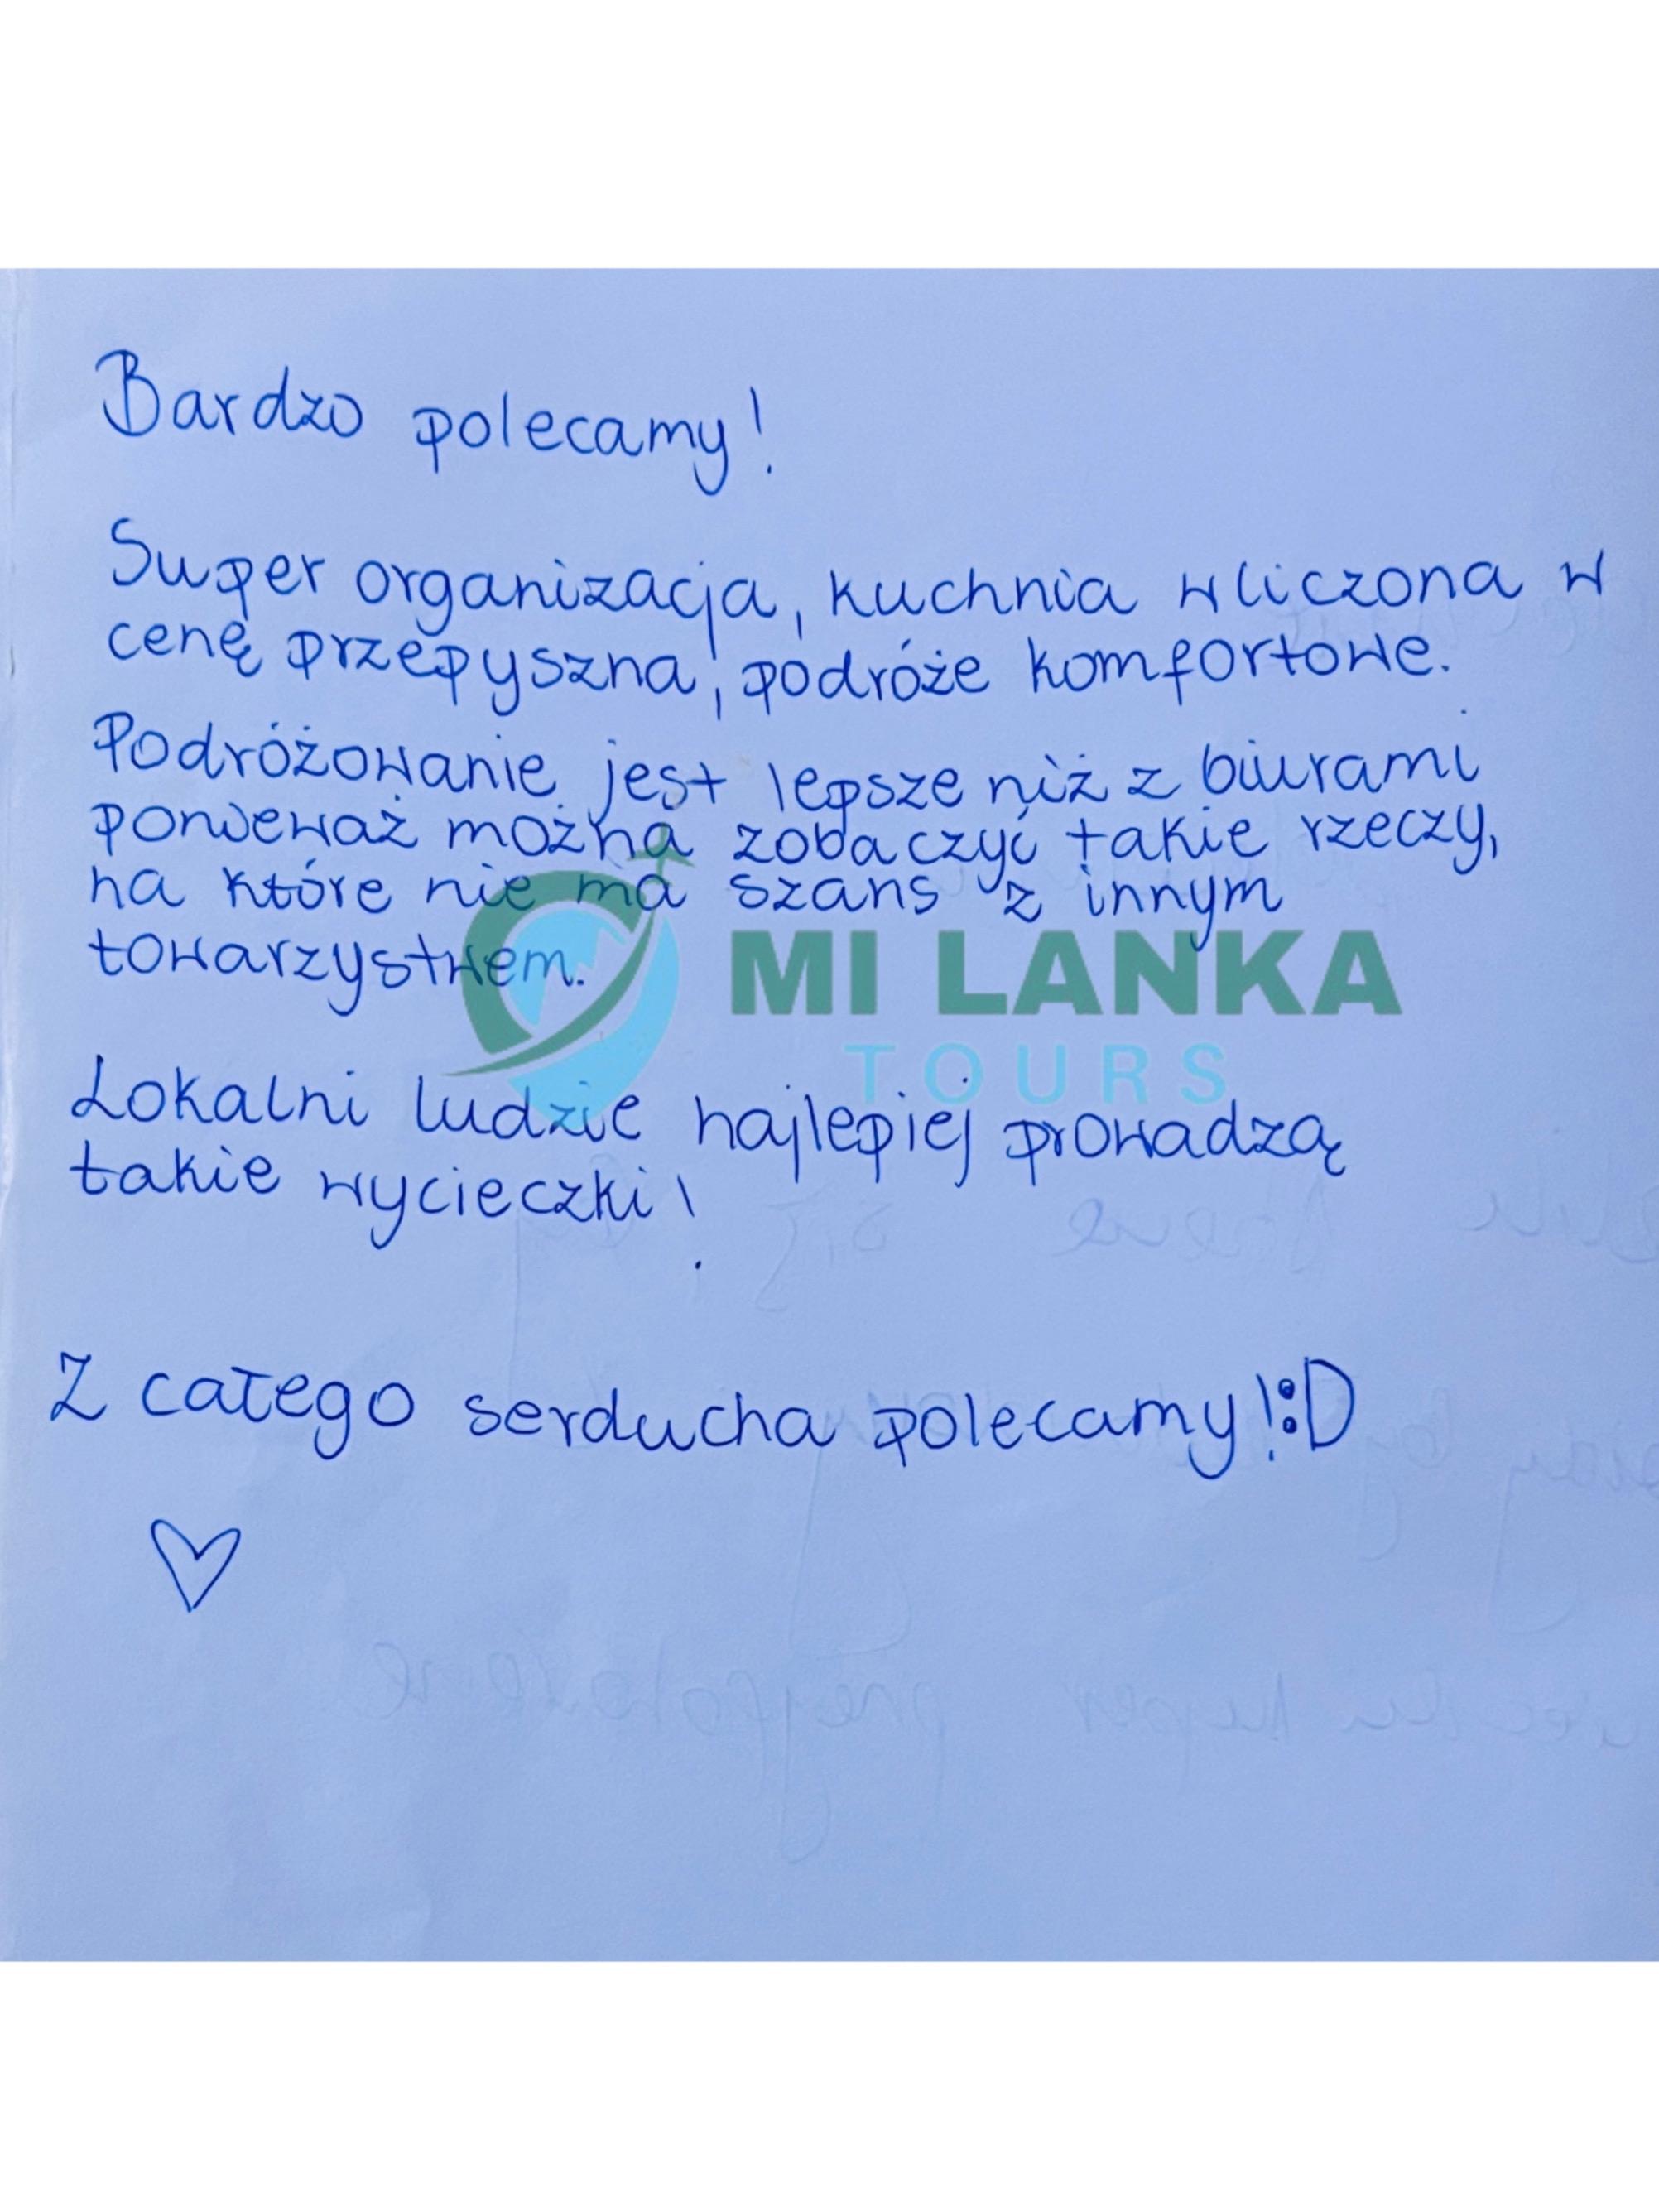 Bardzo polecamy!
Super organizacja, kuchnia wliczona w
cenę przepyszna, podróże komfortowe.
Podróżowanie jest lepsze niż z biurami
ponieważ można zobaczyć takie rzeczy,
na które nie ma szans z innym
towarzystwem.
MI LANKA
TOURS
Lokalni ludzie najlepiej prowadzą
takie wycieczki!
Z całego serducha polecamy! :D